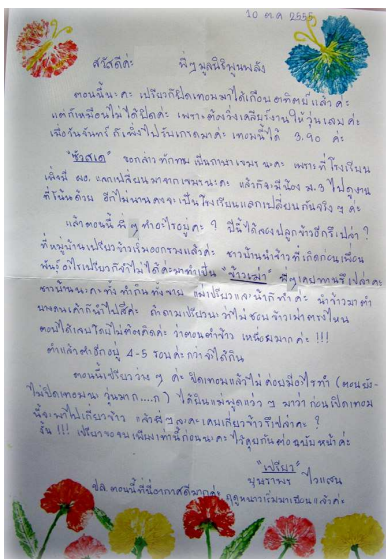 10 ต.ค 2555
สวัสดีค่ะ พี่ๆ มูลนิธิพูนพลัง
ตอนนี้นะคะ เปรียวก็ปิดเทอมมาได้เกือบอาทิตย์แล้วค่ะ
แต่ก็เหมือนไม่ได้ปิดค่ะ เพราะต้องวิ่งเคลียร์งานให้วุ่นเลยค่ะ
เมื่อวันจันทร์ ก็เพิ่งไปรับเกรดมาค่ะ เทอมนี้ได้ 3.90 ค่ะ
"ซัวสเด" ขอกล่าวทักทายเป็นภาษาเขมรนะคะ เพราะที่โรงเรียน
เพิ่งมี ผอ. แลกเปลี่ยนมาจากเขมรนะคะ แล้วก็จะมีน้อง ม.3 ไปดูงาน
ที่โน้นด้วย อีกไม่นานคงจะเป็นโรงเรียนแลกเปลี่ยนกันจริงๆ ค่ะ
แล้วตอนนี้ พี่ๆ ทำอะไรอยู่คะ ? ปีนี้ได้ลองปลูกข้าวอีกรึเปล่า ?
ที่หมู่บ้านเปรียวข้าวเริ่มออกรวงแล้วค่ะ ชาวบ้านนำข้าวที่เกิดก่อนเพื่อน
พันธุ์อะไรเปรียวก็จำไม่ได้ค่ะมาทำเป็น "ข้าวเม่า" พี่ๆ เคยทานรึเปล่าคะ
ชาวบ้านนะคะทั้งทำกินทั้งขาย แม่เปรียวและน้าก็ทำค่ะ นำข้าวมาตำ
บางคนเค้าก็นำไปสีค่ะ ถ้าถามเปรียวนะว่าไม่ชอบข้าวเม่าตรงไหน
ตอบได้เลยโดยไม่ต้องคิดค่ะ ว่าตอนตำข้าว เหนื่อยมากค่ะ !!!
ตำแล้วตำอีกอยู่ 4-5 รอบค่ะกว่าจะได้กิน
ตอนนี้เปรียวว่างๆ ค่ะ ปิดเทอมแล้วไม่ค่อยมีอะไรทำ (ตอนยัง
ไม่ปิดเทอมนะ วุ่นมาก....ก) ได้ยินแม่พูดแว่วๆ มาว่า ก่อนเปิดเทอม
นี้จะพาไปเกี่ยวข้าว แล้วพี่ๆ ละคะเคยเกี่ยวข้าวรึเปล่าคะ ?
งั้น !!! เปรียวขอจบเพียงเท่านี้ก่อนนะคะ ไว้คุยกันต่อฉบับหน้าค่ะ
"เปรียว"
ปล. ตอนนี้ที่นี่อากาศดีมากค่ะ ฤดูหนาวเริ่มมาเยือนแล้วค่ะ